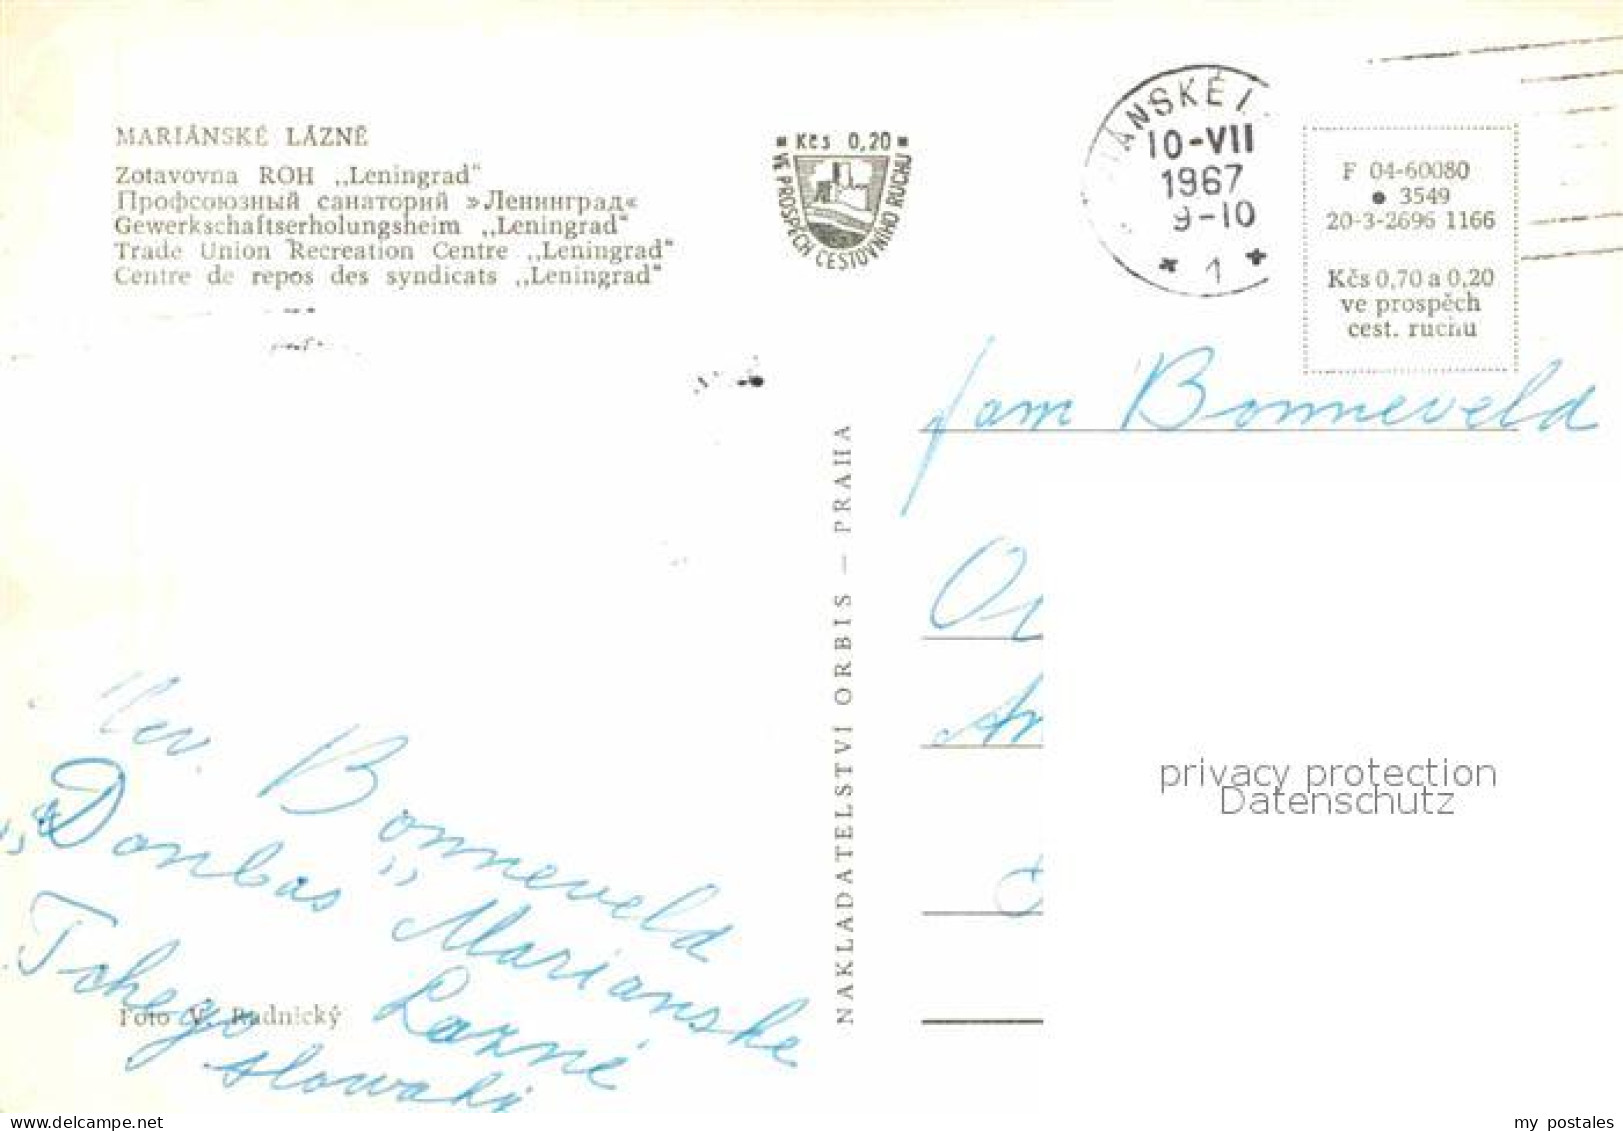 MARIÁNSKÉ LÁZNĚ
Zotavovna ROH „Leningrad“
Профсоюзный санаторий »Ленинград«
Gewerkschaftserholungsheim „Leningrad“
Trade Union Recreation Centre „Leningrad“
Centre de repos des syndicats „Leningrad“
Kčs 0,20
VE PROSPĚCH CESTOVNÍHO RUCHU
IÁNSKÉ
10-VII
1967
9-10
1
F 04-60080
3549
20-3-2696 1166
Kčs 0,70 a 0,20
ve prospěch
cest. ruchu
fam Bonneveld
NAKLADATELSTVÍ ORBIS — PRAHA
privacy protection
Datenschutz
Bonneveld
„Donbas" Marianske
Lazné
Foto V. Rudnický
slowaki
my postales